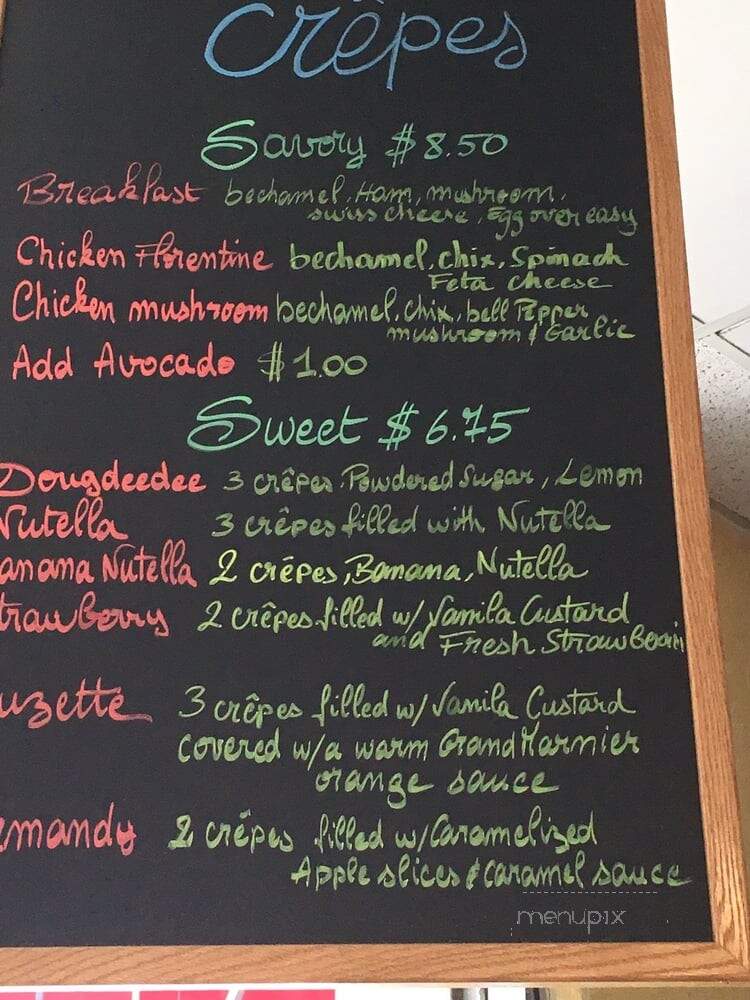 Crêpes
Savory $8.50
Breakfast bechamel, Ham, mushroom,
swiss cheese, Egg over easy
Chicken Florentine bechamel, chix, Spinach
Feta cheese
Chicken mushroom bechamel, chix, bell Pepper
mushroom & Garlic
Add Avocado $1.00
Sweet $6.75
Dougdeedee 3 crêpes Powdered Sugar, Lemon
Nutella 3 crêpes filled with Nutella
anana Nutella 2 crêpes, Banana, Nutella
trawberry 2 crêpes filled w/ Vanila Custard
and Fresh Strawberri
uzette 3 crêpes filled w/ Vanila Custard
covered w/a warm Grand Marnier
orange sauce
rmandy 2 crêpes filled w/ Caramelized
Apple slices & caramel sauce
menupix